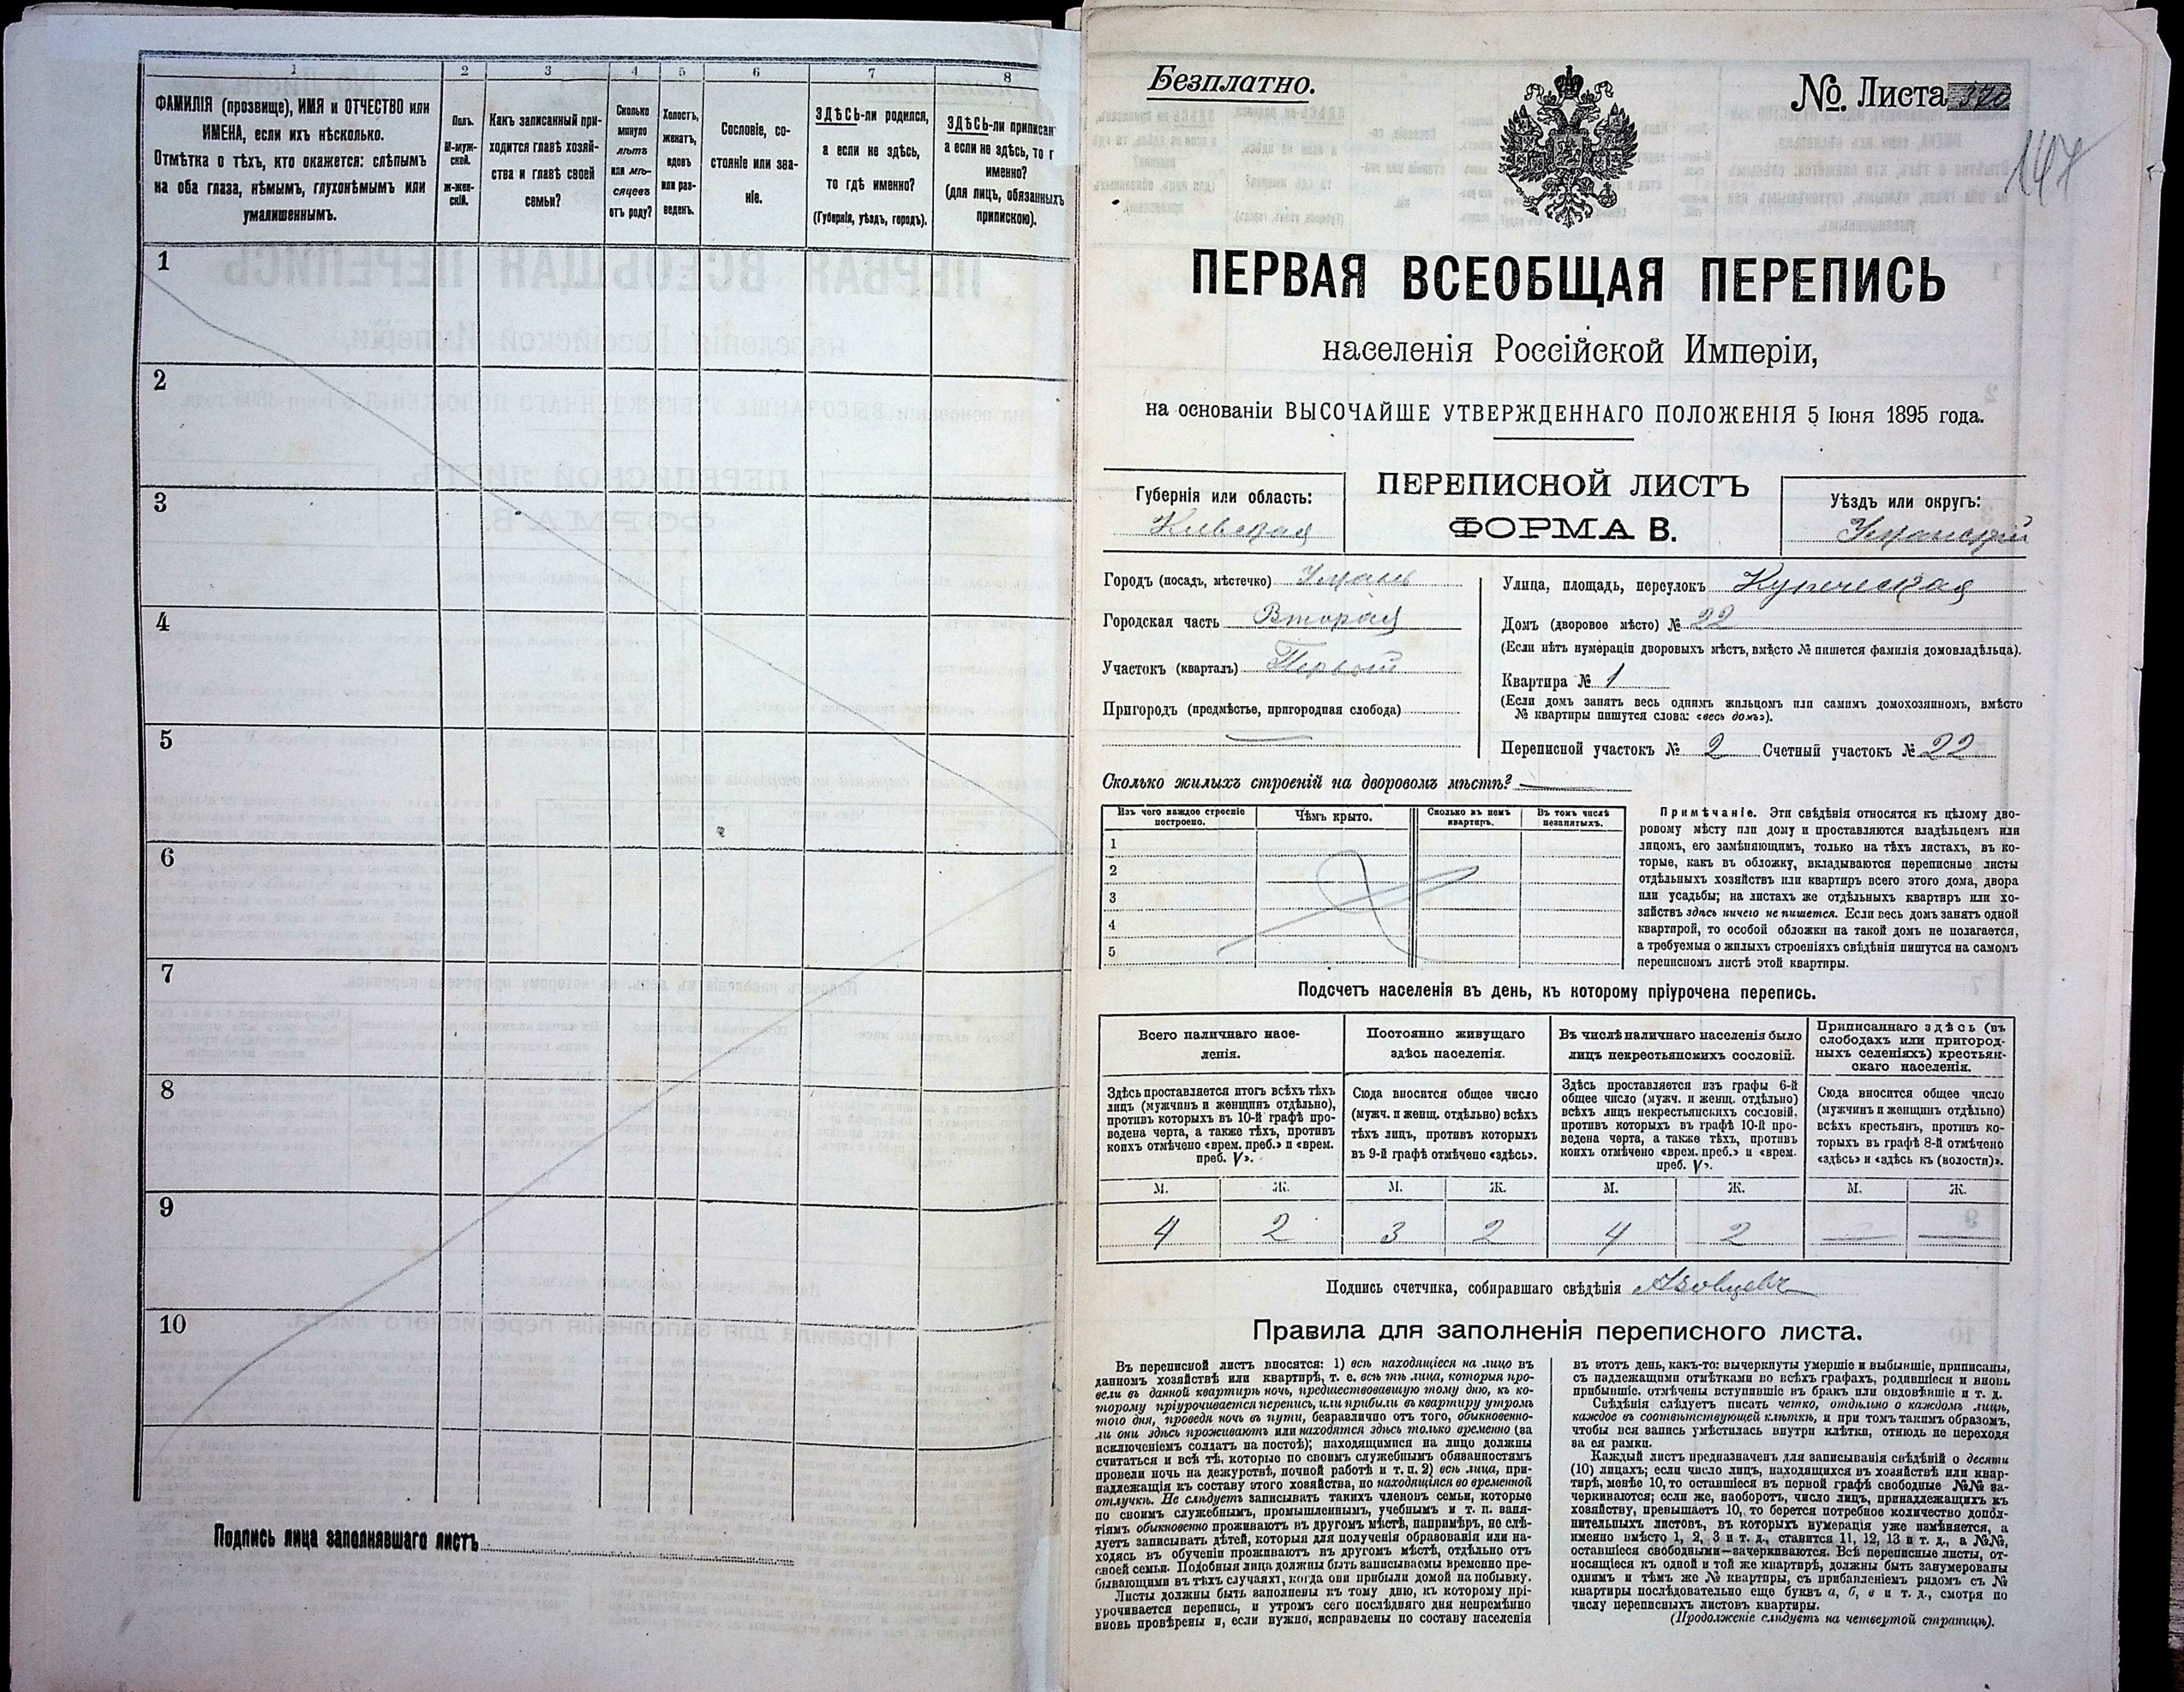 1 2 3 4 5 6 7 8
ФАМИЛІЯ (прозвище), ИМЯ и ОТЧЕСТВО или
ИМЕНА, если ихъ нѣсколько.
Отмѣтка о тѣхъ, кто окажется: слѣпымъ
на оба глаза, нѣмымъ, глухонѣмымъ или
умалишеннымъ.
Полъ.
М-муж-
ской.
Ж-жен-
скій.
Какъ записанный при-
ходится главѣ хозяй-
ства и главѣ своей
семьи?
Сколько
минуло
лѣтъ
или мѣ-
сяцевъ
отъ роду?
Холостъ,
женатъ,
вдовъ
или раз-
веденъ.
Сословіе, со-
стояніе или зва-
ніе.
ЗДѢСЬ-ли родился,
а если не здѣсь,
то гдѣ именно?
(Губернія, уѣздъ, городъ).
ЗДѢСЬ-ли приписан
а если не здѣсь, то г
именно?
(для лицъ, обязанныхъ
припискою).
1
2
3
4
5
6
7
8
9
10
Подпись лица заполнявшаго листъ
Безплатно.
№. Листа
147
ПЕРВАЯ ВСЕОБЩАЯ ПЕРЕПИСЬ
населенія Россійской Имперіи,
на основаніи ВЫСОЧАЙШЕ УТВЕРЖДЕННАГО ПОЛОЖЕНІЯ 5 Іюня 1895 года.
Губернія или область:
Кіевская
ПЕРЕПИСНОЙ ЛИСТЪ
ФОРМА В.
Уѣздъ или округъ:
Уманскій
Городъ (посадъ, мѣстечко) Умань
Городская часть Вторая
Участокъ (кварталъ) Первый
Пригородъ (предмѣстье, пригородная слобода)
Улица, площадь, переулокъ Купеческая
Домъ (дворовое мѣсто) № 22
(Если нѣтъ нумераціи дворовыхъ мѣстъ, вмѣсто № пишется фамилія домовладѣльца).
Квартира № 1
(Если домъ занятъ весь однимъ жильцомъ или самимъ домохозяиномъ, вмѣсто
№ квартиры пишутся слова: «весь домъ»).
Переписной участокъ № 2 Счетный участокъ № 22
Сколько жилыхъ строеній на дворовомъ мѣстѣ?
Изъ чего каждое строеніе
построено.
Чѣмъ крыто.
Сколько въ немъ
квартиръ.
Въ томъ числѣ
незанятыхъ.
1
2
3
4
5
Примѣчаніе. Эти свѣдѣнія относятся къ цѣлому дво-
ровому мѣсту или дому и проставляются владѣльцемъ или
лицомъ, его замѣняющимъ, только на тѣхъ листахъ, въ ко-
торые, какъ въ обложку, вкладываются переписные листы
отдѣльныхъ хозяйствъ или квартиръ всего этого дома, двора
или усадьбы; на листахъ же отдѣльныхъ квартиръ или хо-
зяйствъ здѣсь ничего не пишется. Если весь домъ занятъ одной
квартирой, то особой обложки на такой домъ не полагается,
а требуемыя о жилыхъ строеніяхъ свѣдѣнія пишутся на самомъ
переписномъ листѣ этой квартиры.
Подсчетъ населенія въ день, къ которому пріурочена перепись.
Всего наличнаго насе-
ленія.
Постоянно живущаго
здѣсь населенія.
Въ числѣ наличнаго населенія было
лицъ некрестьянскихъ сословій.
Приписаннаго здѣсь (въ
слободахъ или пригород-
ныхъ селеніяхъ) крестьян-
скаго населенія.
Здѣсь проставляется итогъ всѣхъ тѣхъ
лицъ (мужчинъ и женщинъ отдѣльно),
противъ которыхъ въ 10-й графѣ про-
ведена черта, а также тѣхъ, противъ
коихъ отмѣчено «врем. преб.» и «врем.
преб. V».
Сюда вносится общее число
(мужч. и женщ. отдѣльно) всѣхъ
тѣхъ лицъ, противъ которыхъ
въ 9-й графѣ отмѣчено «здѣсь».
Здѣсь проставляется изъ графы 6-й
общее число (мужч. и женщ. отдѣльно)
всѣхъ лицъ некрестьянскихъ сословій,
противъ которыхъ въ графѣ 10-й про-
ведена черта, а также тѣхъ, противъ
коихъ отмѣчено «врем. преб.» и «врем.
преб. V».
Сюда вносится общее число
(мужчинъ и женщинъ отдѣльно)
всѣхъ крестьянъ, противъ ко-
торыхъ въ графѣ 8-й отмѣчено
«здѣсь» и «здѣсь къ (волости)».
М. Ж. М. Ж. М. Ж. М. Ж.
4 2 3 2 4 2
Подпись счетчика, собиравшаго свѣдѣнія
Правила для заполненія переписного листа.
Въ переписной листъ вносятся: 1) всѣ находящіеся на лицо въ
данномъ хозяйствѣ или квартирѣ, т. е. всѣ тѣ лица, которыя про-
вели въ данной квартирѣ ночь, предшествовавшую тому дню, къ ко-
торому пріурочивается перепись, или прибыли въ квартиру утромъ
того дня, проведя ночь въ пути, безразлично отъ того, обыкновенно-
ли они здѣсь проживаютъ или находятся здѣсь только временно (за
исключеніемъ солдатъ на постоѣ); находящимися на лицо должны
считаться и всѣ тѣ, которые по своимъ служебнымъ обязанностямъ
провели ночь на дежурствѣ, ночной работѣ и т. п. 2) всѣ лица, при-
надлежащія къ составу этого хозяйства, но находящіяся во временной
отлучкѣ. Не слѣдуетъ записывать такихъ членовъ семьи, которые
по своимъ служебнымъ, промышленнымъ, учебнымъ и т. п. заня-
тіямъ обыкновенно проживаютъ въ другомъ мѣстѣ, напримѣръ, не слѣ-
дуетъ записывать дѣтей, которыя для полученія образованія или на-
ходясь въ обученіи проживаютъ въ другомъ мѣстѣ, отдѣльно отъ
своей семьи. Подобныя лица должны быть записываемы временно пре-
бывающими въ тѣхъ случаяхъ, когда они прибыли домой на побывку.
Листы должны быть заполнены къ тому дню, къ которому прі-
урочивается перепись, и утромъ сего послѣдняго дня непремѣнно
вновь провѣрены и, если нужно, исправлены по составу населенія
въ этотъ день, какъ-то: вычеркнуты умершіе и выбывшіе, приписаны,
съ надлежащими отмѣтками во всѣхъ графахъ, родившіеся и вновь
прибывшіе, отмѣчены вступившіе въ бракъ или овдовѣвшіе и т. д.
Свѣдѣнія слѣдуетъ писать четко, отдѣльно о каждомъ лицѣ,
каждое въ соотвѣтствующей клѣткѣ, и при томъ такимъ образомъ,
чтобы вся запись умѣстилась внутри клѣтки, отнюдь не переходя
за ея рамки.
Каждый листъ предназначенъ для записыванія свѣдѣній о десяти
(10) лицахъ; если число лицъ, находящихся въ хозяйствѣ или квар-
тирѣ, менѣе 10, то оставшіеся въ первой графѣ свободные №№ за-
черкиваются; если же, наоборотъ, число лицъ, принадлежащихъ къ
хозяйству, превышаетъ 10, то берется потребное количество допол-
нительныхъ листовъ, въ которыхъ нумерація уже измѣняется, а
именно вмѣсто 1, 2, 3 и т. д., ставится 11, 12, 13 и т. д., а №№,
оставшіеся свободными—зачеркиваются. Всѣ переписные листы, от-
носящіеся къ одной и той же квартирѣ, должны быть занумерованы
однимъ и тѣмъ же № квартиры, съ прибавленіемъ рядомъ съ №
квартиры послѣдовательно еще буквъ а, б, в и т. д., смотря по
числу переписныхъ листовъ квартиры.
(Продолженіе слѣдуетъ на четвертой страницѣ).